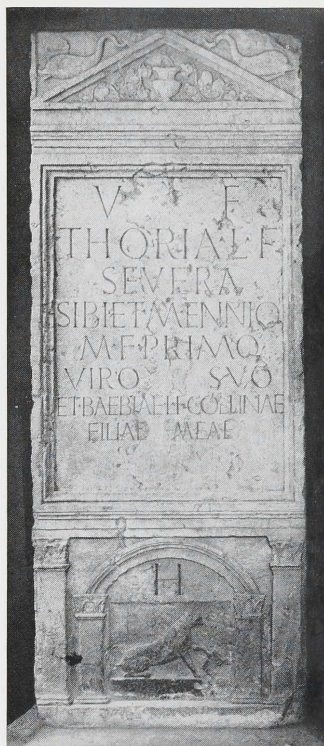 V F
THORIA L F
SEVERA
SIBI ET MENNIO
M·F·PRIMO
VIRO SVO
ET·BAEBIAE·H·COLLINAE
FILIAE MEAE
H